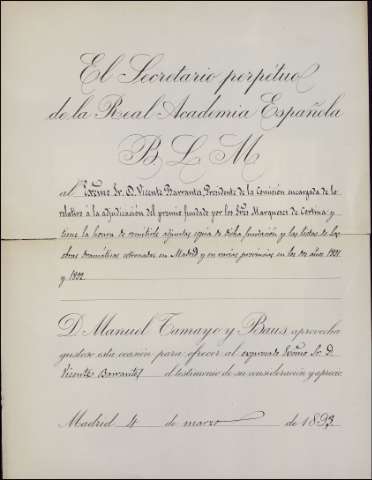 El Secretario perpétuo
de la Real Academia Española
B L M
al Excmo Sr. D. Vicente Barrantes, Presidente de la Comisión encargada de lo
relativo á la adjudicación del premio fundado por los Sres Marqueses de Cortina y
tiene la honra de remitirle adjuntas copia de dicha fundación y las listas de las
obras dramáticas estrenadas en Madrid y en varias provincias en los dos años 1891
y 1892
D. Manuel Tamayo y Baus aprovecha
gustoso esta ocasión para ofrecer al expresado Excmo Sr. D.
Vicente Barrantes el testimonio de su consideración y aprecio
Madrid 4 de marzo de 1893.